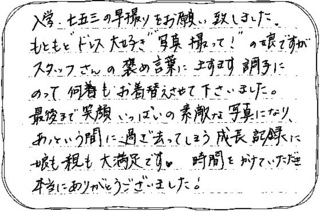 入学、七五三の早撮りをお願い致しました。
もともと"ドレス大好き""写真撮って!"の娘ですが
スタッフさんの褒め言葉にますます調子に
のって何着もお着替えさせて下さいました。
最後まで笑顔いっぱいの素敵な写真になり、
あっという間に過ぎ去ってしまう成長記録に
娘も親も大満足です♥ 時間をかけていただき
本当にありがとうございました!